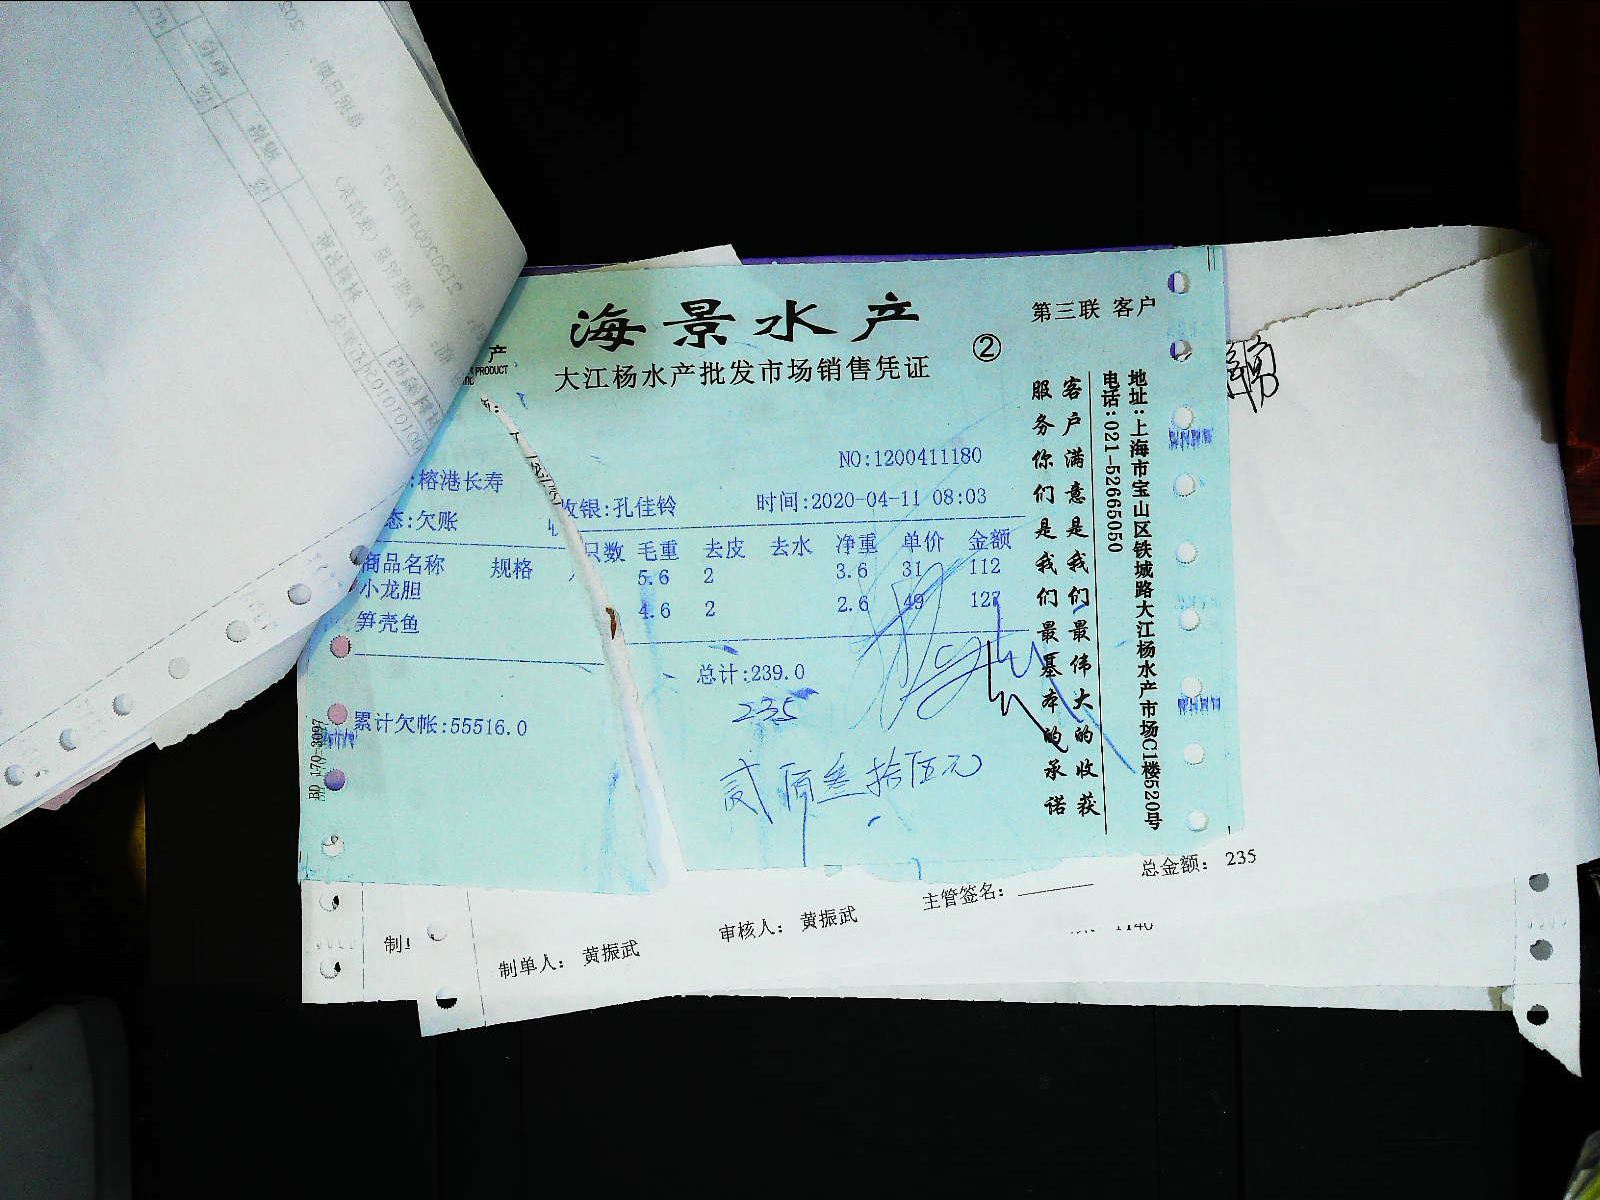 海景水产
第三联 客户
②
大江杨水产批发市场销售凭证
产
PRODUCT
NO:1200411180
:榕港长寿
收银:孔佳铃
时间:2020-04-11 08:03
态:欠账
商品名称 规格 只数 毛重 去皮 去水 净重 单价 金额
小龙胆 5.6 2 3.6 31 112
笋壳鱼 4.6 2 2.6 49 127
总计:239.0
235
累计欠帐:55516.0
贰佰叁拾伍元
客户满意是我们最伟大的收获
服务你们是我们最基本的承诺
地址:上海市宝山区铁城路大江杨水产市场C1楼520号
电话:021-52665050
BD 170-3097
总金额: 235
主管签名:
审核人: 黄振武
制单人: 黄振武
制
1140